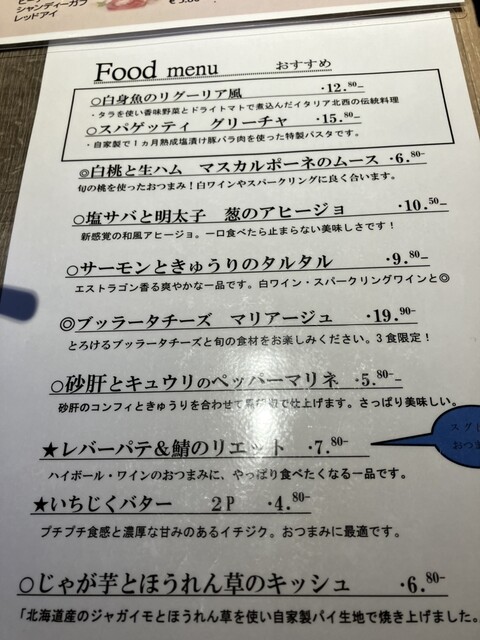 シャンディーガフ
レッドアイ
Food menu おすすめ
○白身魚のリグーリア風 ・12.80-
・タラを使い香味野菜とドライトマトで煮込んだイタリア北西の伝統料理
○スパゲッティ グリーチャ ・15.80-
・自家製で1ヵ月熟成塩漬け豚バラ肉を使った特製パスタです。
◎白桃と生ハム マスカルポーネのムース ・6.80-
旬の桃を使ったおつまみ！白ワインやスパークリングに良く合います。
○塩サバと明太子 葱のアヒージョ ・10.50-
新感覚の和風アヒージョ。一口食べたら止まらない美味しさです！
○サーモンときゅうりのタルタル ・9.80-
エストラゴン香る爽やかな一品です。白ワイン・スパークリングワインと◎
◎ブッラータチーズ マリアージュ ・19.90-
とろけるブッラータチーズと旬の食材をお楽しみください。3食限定！
○砂肝とキュウリのペッパーマリネ ・5.80-
砂肝のコンフィときゅうりを合わせて黒胡椒で仕上げます。さっぱり美味しい。
★レバーパテ&鯖のリエット ・7.80-
ハイボール・ワインのおつまみに、やっぱり食べたくなる一品です。
スグ
おつま
★いちじくバター 2P ・4.80-
プチプチ食感と濃厚な甘みのあるイチジク。おつまみに最適です。
○じゃが芋とほうれん草のキッシュ ・6.80-
「北海道産のジャガイモとほうれん草を使い自家製パイ生地で焼き上げました。